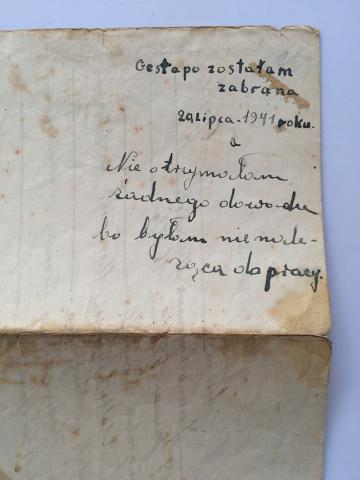 Gestapo zostałam
zabrana
20 Lipca - 1941 roku.
a
Nie otrzymałam
żadnego dowodu
bo byłam nie nale-
żąca do pracy.